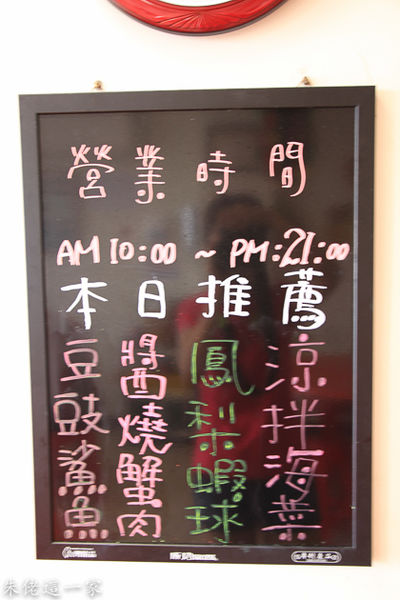 營業時間
AM 10:00 ~ PM:21:00
本日推薦
涼拌海菜
鳳梨蝦球
醬燒蟹肉
豆豉鯊魚
朱佬這一家